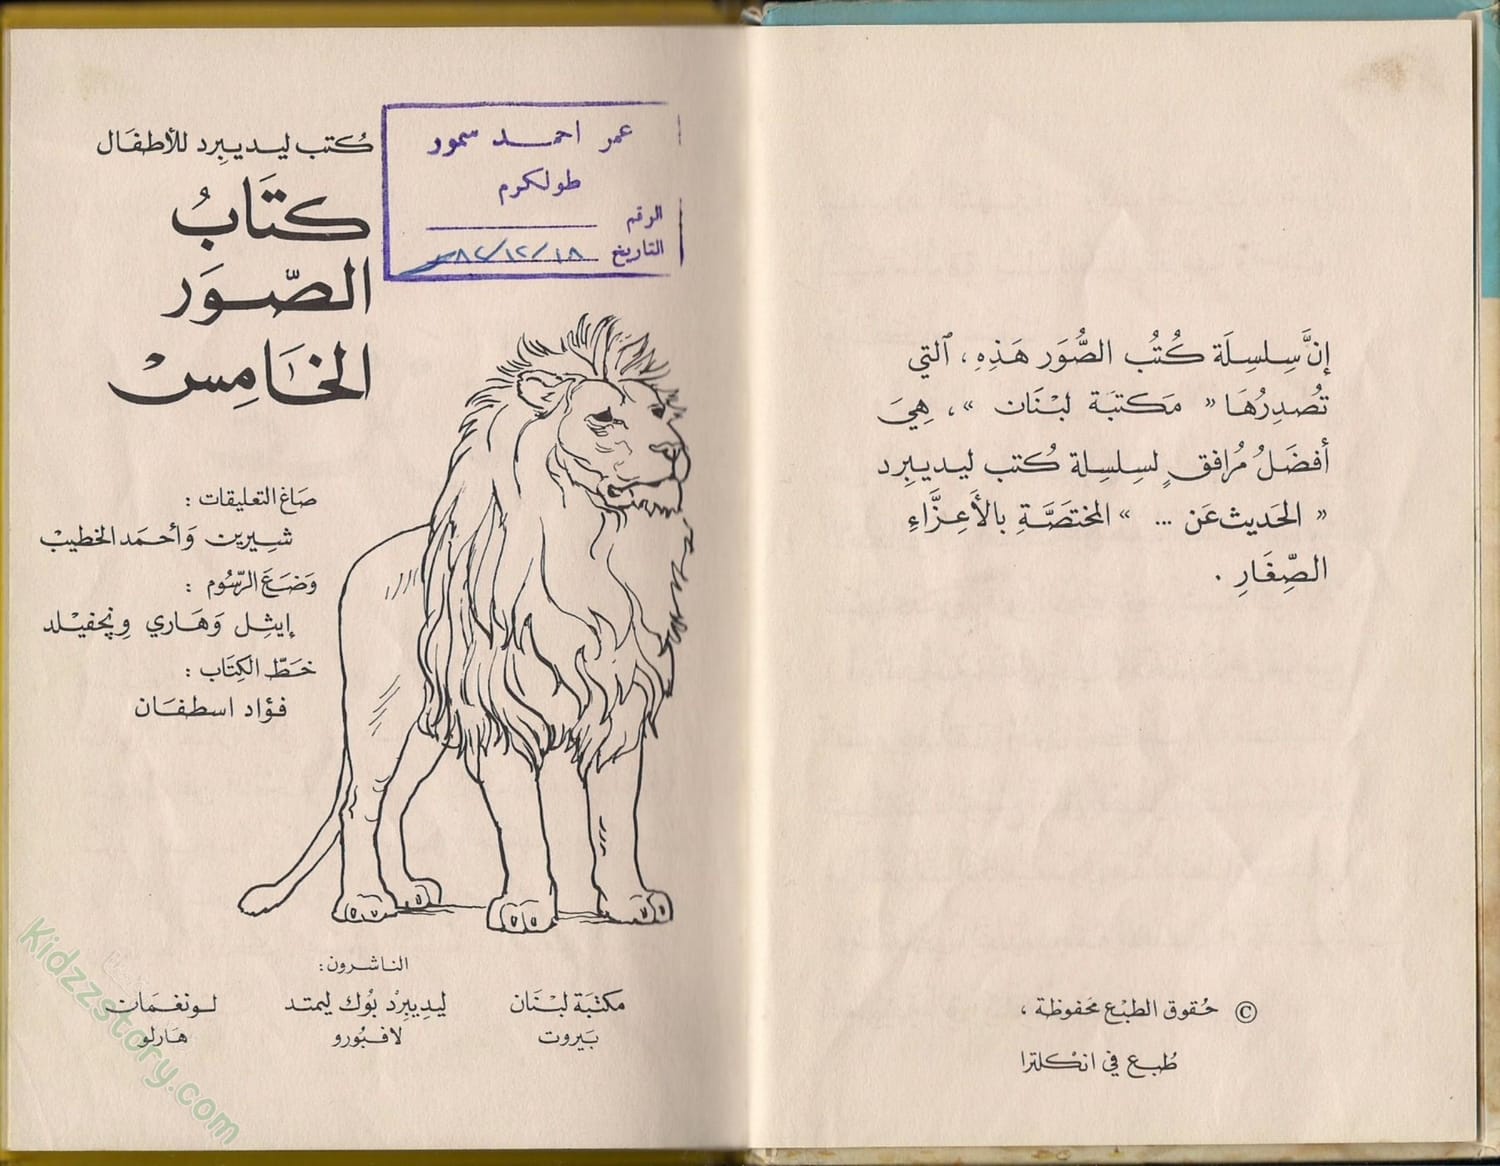 إنَّ سِلسِلَة كُتُب الصُّوَر هَذِهِ ، ٱلتي
تُصدِرُهَا « مَكتبَة لبْنَان » ، هِيَ
أفضَلُ مُرافقٍ لسِلسِلة كُتب ليديبِرد
« الحَديث عَن ... » المختصَّةِ بالأَعِزَّاءِ
الصِّغَارِ .
© حُقوق الطبْع محَفوظة ،
طُبع في انكلترا
كُتب ليديبِرد للأطفَال
كتَابُ
الصّوَر
الخَامِسْ
عمر احمد سمور
طولكرم
الرقم
التاريخ ٨٢/١٢/١٨
صَاغ التعليقات :
شيرين وَأحمَد الخطيبْ
وَضَعَ الرّسُوم :
إيثِل وَهَاري وِنجفيْلد
خَطّ الكِتَاب :
فؤاد اسطفَان
الناشرون :
مكتبَة لبْنَان
بَيروت
ليديبِرْد بُوك ليمتد
لافبُورو
لونغمَان
هَارلو
Kidzzstory.com